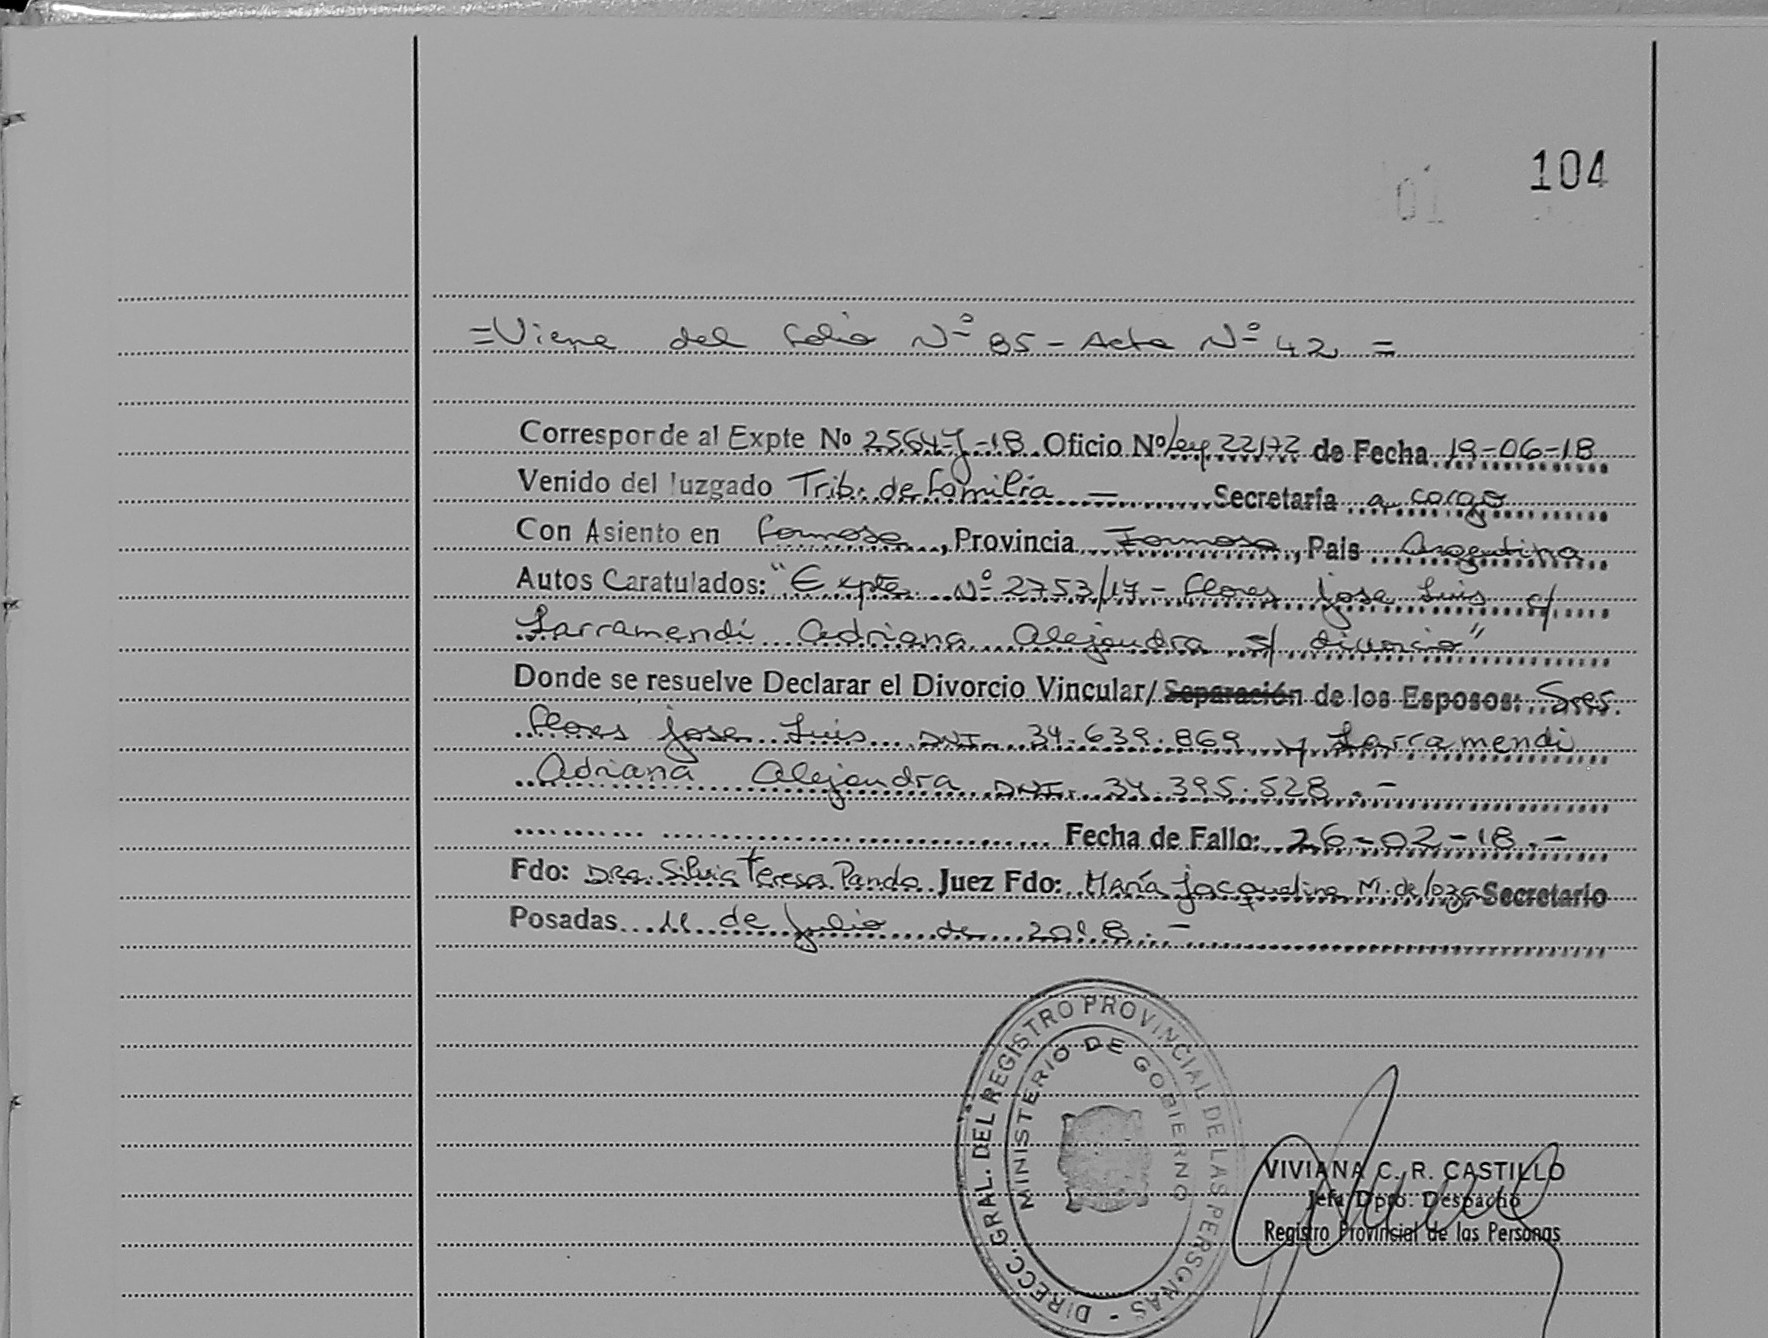 104
=Viene del folio Nº 85 - Acta Nº 42 =
Corresponde al Expte Nº 25647-J-18 Oficio Nº Ley 22172 de Fecha 19-06-18
Venido del Juzgado Trib. de Familia — Secretaría a cargo
Con Asiento en Formosa, Provincia Formosa, País Argentina
Autos Caratulados: "Expte Nº 2753/17 - Flores Jose Luis c/
Larramendi Adriana Alejandra s/ divorcio"
Donde se resuelve Declarar el Divorcio Vincular/Separación de los Esposos: Sres.
Flores Jose Luis DNI. 34.639.869 y Larramendi
Adriana Alejandra DNI. 34.395.528.-
Fecha de Fallo: 26-02-18.-
Fdo: Dra. Silvia Teresa Pando Juez Fdo: María Jacqueline M. de loza Secretario
Posadas 11 de Julio de 2018.-
DIRECC. GRAL. DEL REGISTRO PROVINCIAL DE LAS PERSONAS -
MINISTERIO DE GOBIERNO
VIVIANA C. R. CASTILLO
Jefa Dpto. Despacho
Registro Provincial de las Personas